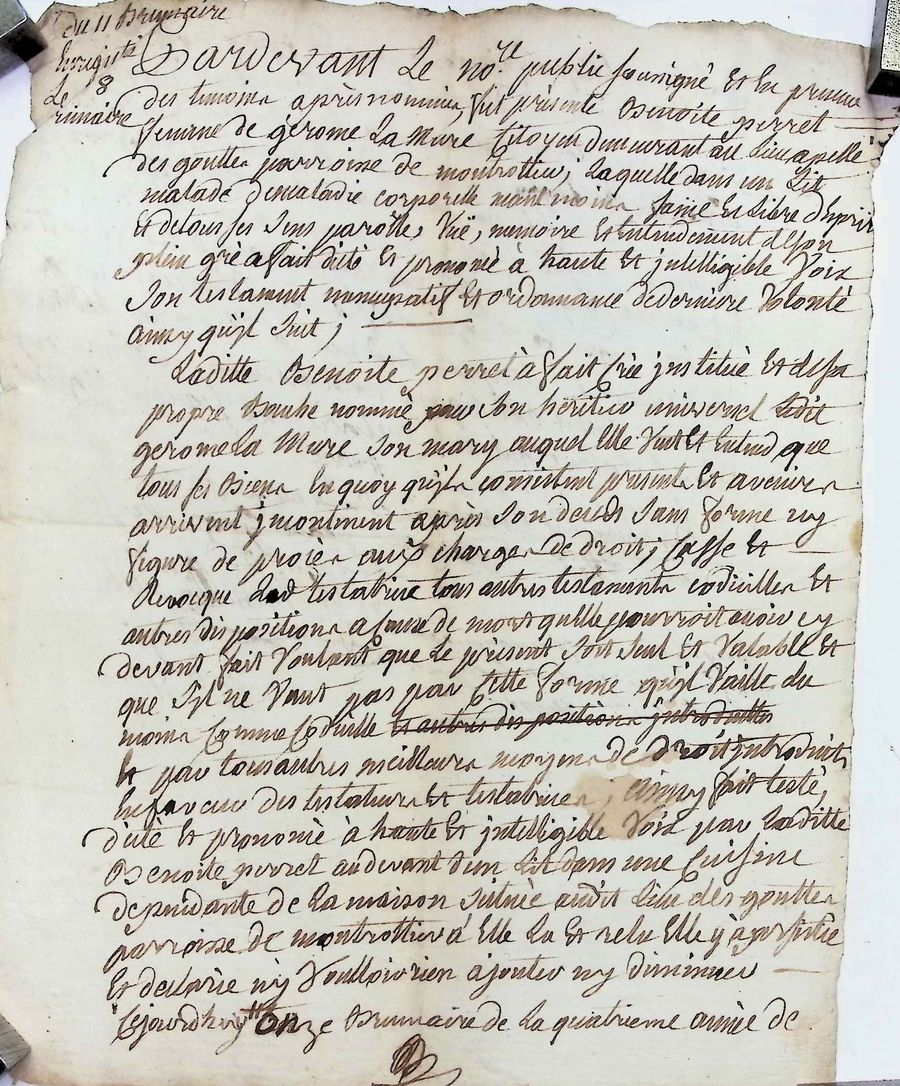 du 11 Brumaire
Enregistré
Le 8
rimaire
Pardevant Le no.re public soussigné et En presence
des temoins aprés nommés, fut présente Benoite perret
femme de gérome La Mure Citoyen demeurant au Lieu apellé
des goutte parroisse de montrottier; Laquelle dans un Lit
malade de maladie corporelle néant moins saine et Libre d'Esprit
et de tous ses sens parolle, vuë, memoire et entendement de son
plein gré a fait dicté et prononcé à haute et jntelligible voix
son testament noncupatif et ordonnance de derniere volonté
ainsy qu'jl suit;
Laditte Benoite perret à fait Crée jnstitué et de sa
propre Bouche nommé pour son héritier universel Ledit
gerome La Mure son mary auquel Elle veut et Entend que
tous ses Biens En quoy qu'jls consistent presents et avenirs
arrivent jncontinent après son deces sans forme ny
figure de procès aux charges de droit; Casse et
Revocque Lad testatrice tous autres testaments codicilles et
autres dispositions a Cause de mort qu'elle pourroit avoir cy
devant fait voulant que Le présent soit seul et valable et
que s'jl ne vaut pas par Cette forme qu'jl vaille du
moins Comme Codicille et autres dispositions jntroduittes
et par tous autres meilleurs moyens de droit jntroduits
En faveur des testateurs et testatrices; ainsy fait testé,
dicté et prononcé à haute et jntelligible voix par Laditte
Benoite perret au devant d'un Lit dans une Cuisine
dependante de La maison située audit Lieu des gouttes
parroisse de montrottier à Elle Lu et relu Elle y a persisté
Et declaré n'y vouloir rien ajouter ny diminuer
Cejourdhuy onze Brumaire de La quatrieme année de